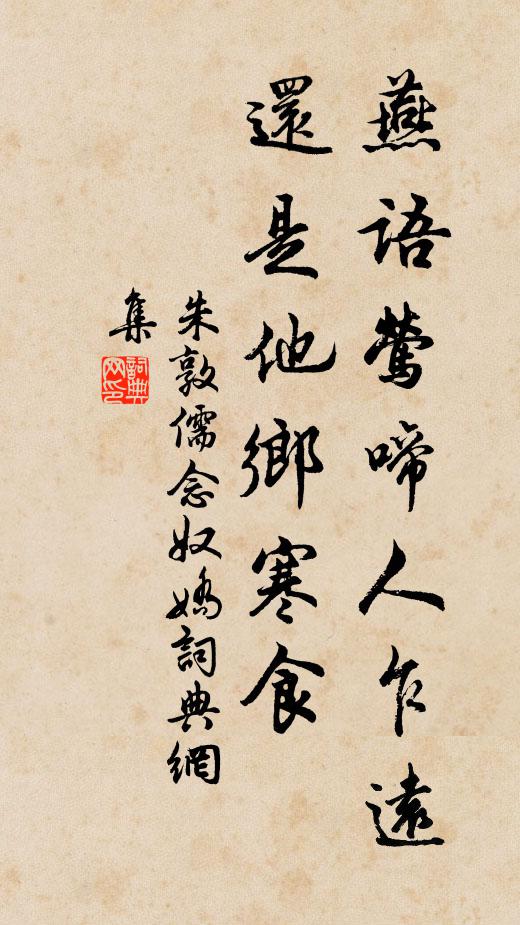 燕語鶯啼人乍遠
還是他鄉寒食
朱敦儒念奴嬌詞典網
集
詞典网印